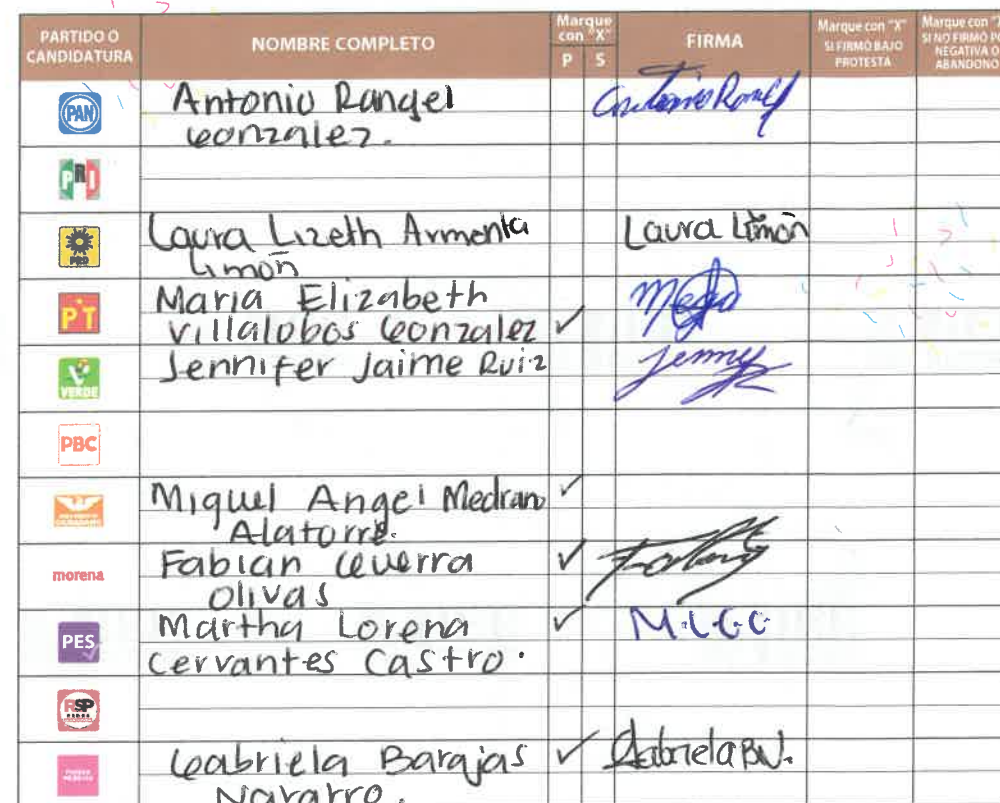 PARTIDO O CANDIDATURA
NOMBRE COMPLETO
Marque con "X"
P S
FIRMA
Marque con "X" SI FIRMÓ BAJO PROTESTA
Marque con "X" SI NO FIRMÓ POR NEGATIVA O ABANDONO
PAN
Antonio Rangel
Gonzalez.
Antonio Rangel
PRI
PRD
Laura Lizeth Armenta
Limón
Laura Limón
PT
Maria Elizabeth
Villalobos Gonzalez ✓
VERDE
Jennifer Jaime Ruiz
Jenny
PBC
Miguel Angel Medrano ✓
Alatorre.
morena
Fabian Guerra ✓
Olivas
PES
Martha Lorena ✓
Cervantes Castro.
RSP
Gabriela Barajas ✓ Gabriela BN.
Navarro.